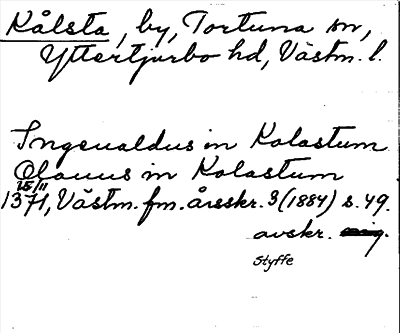 Kålsta, by, Tortuna sn,
Yttertjurbo hd, Västm. l.
Ingeualdus in Kolastum
Olauus in Kolastum
25/11
1371, Västm. fm. årsskr. 3 (1884) s. 49.
avskr.
Styffe